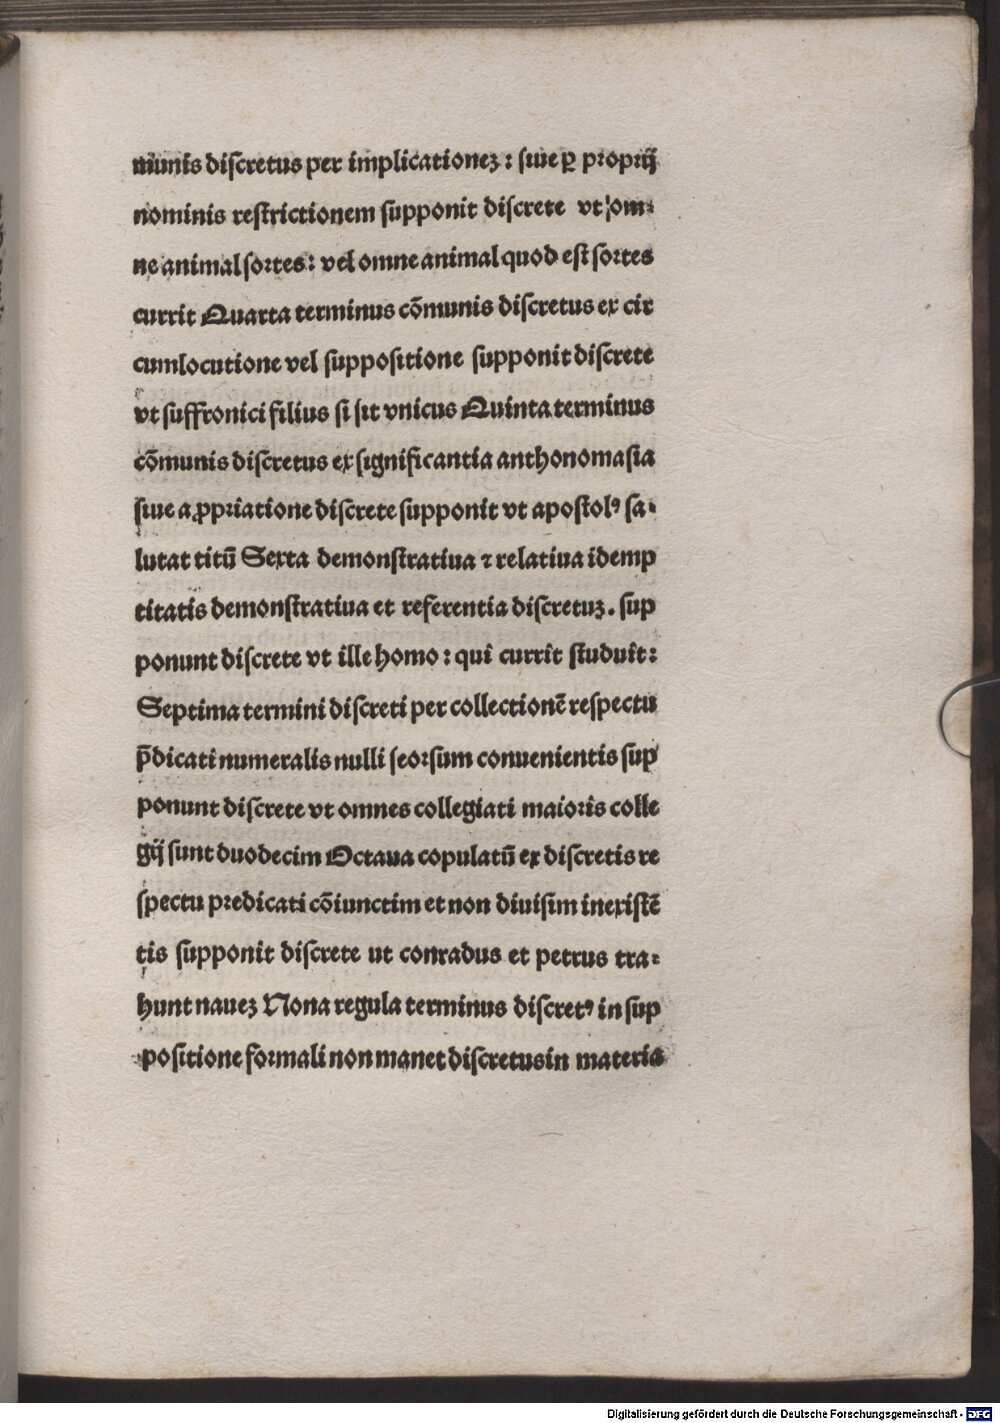 munis diſcretus per implicationeʒ : ſiue ꝑ propriĳ
nominis reſtrictionem ſupponit diſcrete vt om⸗
ne animal ſortes : vel omne animal quod eſt ſortes
currit Quarta terminus cõmunis diſcretus ex cir
cumlocutione vel ſuppoſitione ſupponit diſcrete
vt ſuffronici filius ſi ſit vnicus Quinta terminus
cõmunis diſcretus ex ſignificantia anthonomaſia
ſiue a ꝓpriatione diſcrete ſupponit vt apoſtolꝰ ſa⸗
lutat titū Sexta demonſtratiua ⁊ relatiua idemp
titatis demonſtratiua et referentia diſcretuʒ. ſup
ponunt diſcrete vt ille homo : qui currit ſtuduit :
Septima termini diſcreti per collectionẽ reſpectu
p̄dicati numeralis nulli ſeorſum conuenientis ſup
ponunt diſcrete vt omnes collegiati maioris colle
gĳ ſunt duodecim Octaua copulatū ex diſcretis re
ſpectu predicati cõiunctim et non diuiſim inexiſtẽ
tis ſupponit diſcrete ut conradus et petrus tra⸗
hunt naueʒ Nona regula terminus diſcretꝰ in ſup
poſitione formali non manet diſcretus in materia
Digitalisierung gefördert durch die Deutsche Forschungsgemeinschaft - DFG